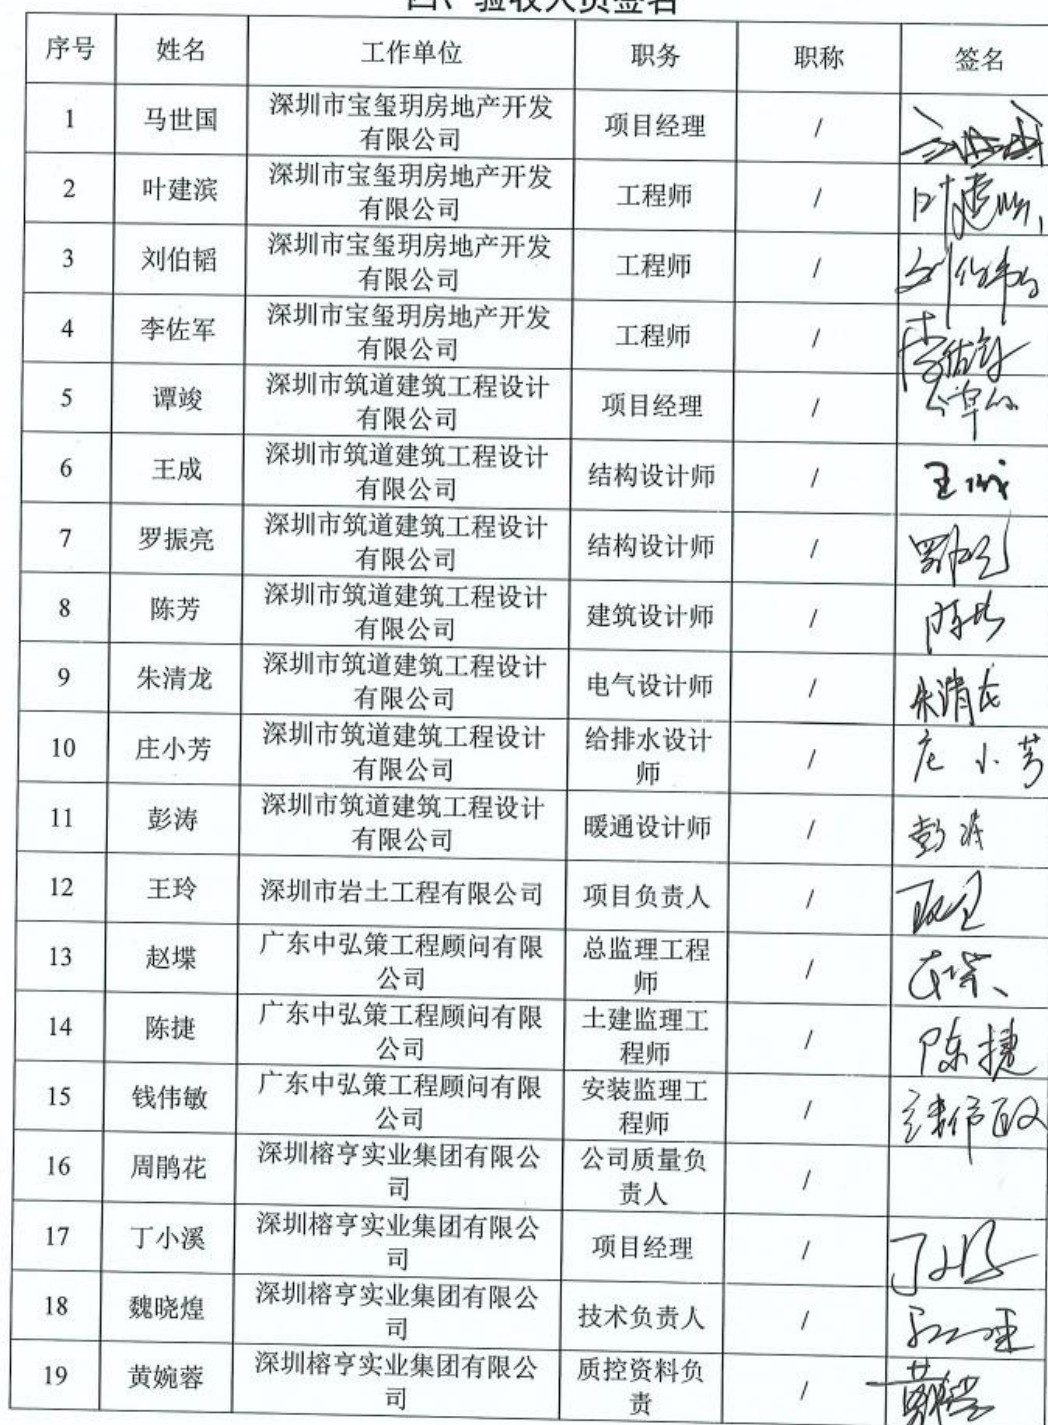 四、验收人员签名
序号 姓名 工作单位 职务 职称 签名
1 马世国 深圳市宝玺玥房地产开发
有限公司 项目经理 / 马世国
2 叶建滨 深圳市宝玺玥房地产开发
有限公司 工程师 / 叶建滨
3 刘伯韬 深圳市宝玺玥房地产开发
有限公司 工程师 / 刘伯韬
4 李佐军 深圳市宝玺玥房地产开发
有限公司 工程师 / 李佐军
5 谭竣 深圳市筑道建筑工程设计
有限公司 项目经理 /
6 王成 深圳市筑道建筑工程设计
有限公司 结构设计师 / 王成
7 罗振亮 深圳市筑道建筑工程设计
有限公司 结构设计师 /
8 陈芳 深圳市筑道建筑工程设计
有限公司 建筑设计师 / 陈芳
9 朱清龙 深圳市筑道建筑工程设计
有限公司 电气设计师 / 朱清龙
10 庄小芳 深圳市筑道建筑工程设计
有限公司 给排水设计
师 / 庄小芳
11 彭涛 深圳市筑道建筑工程设计
有限公司 暖通设计师 / 彭涛
12 王玲 深圳市岩土工程有限公司 项目负责人 /
13 赵堞 广东中弘策工程顾问有限
公司 总监理工程
师 /
14 陈捷 广东中弘策工程顾问有限
公司 土建监理工
程师 / 陈捷
15 钱伟敏 广东中弘策工程顾问有限
公司 安装监理工
程师 / 钱伟敏
16 周鹃花 深圳榕亨实业集团有限公
司 公司质量负
责人 /
17 丁小溪 深圳榕亨实业集团有限公
司 项目经理 /
18 魏晓煌 深圳榕亨实业集团有限公
司 技术负责人 /
19 黄婉蓉 深圳榕亨实业集团有限公
司 质控资料负
责 /